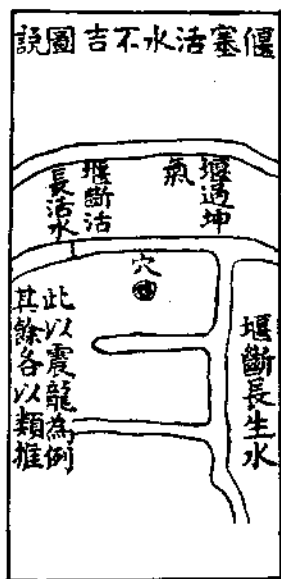 偃塞活水不吉圖説
堰遏坤
氣
堰斷活
長活水
穴
堰斷長生水
此以震龍為例
其餘各以類推